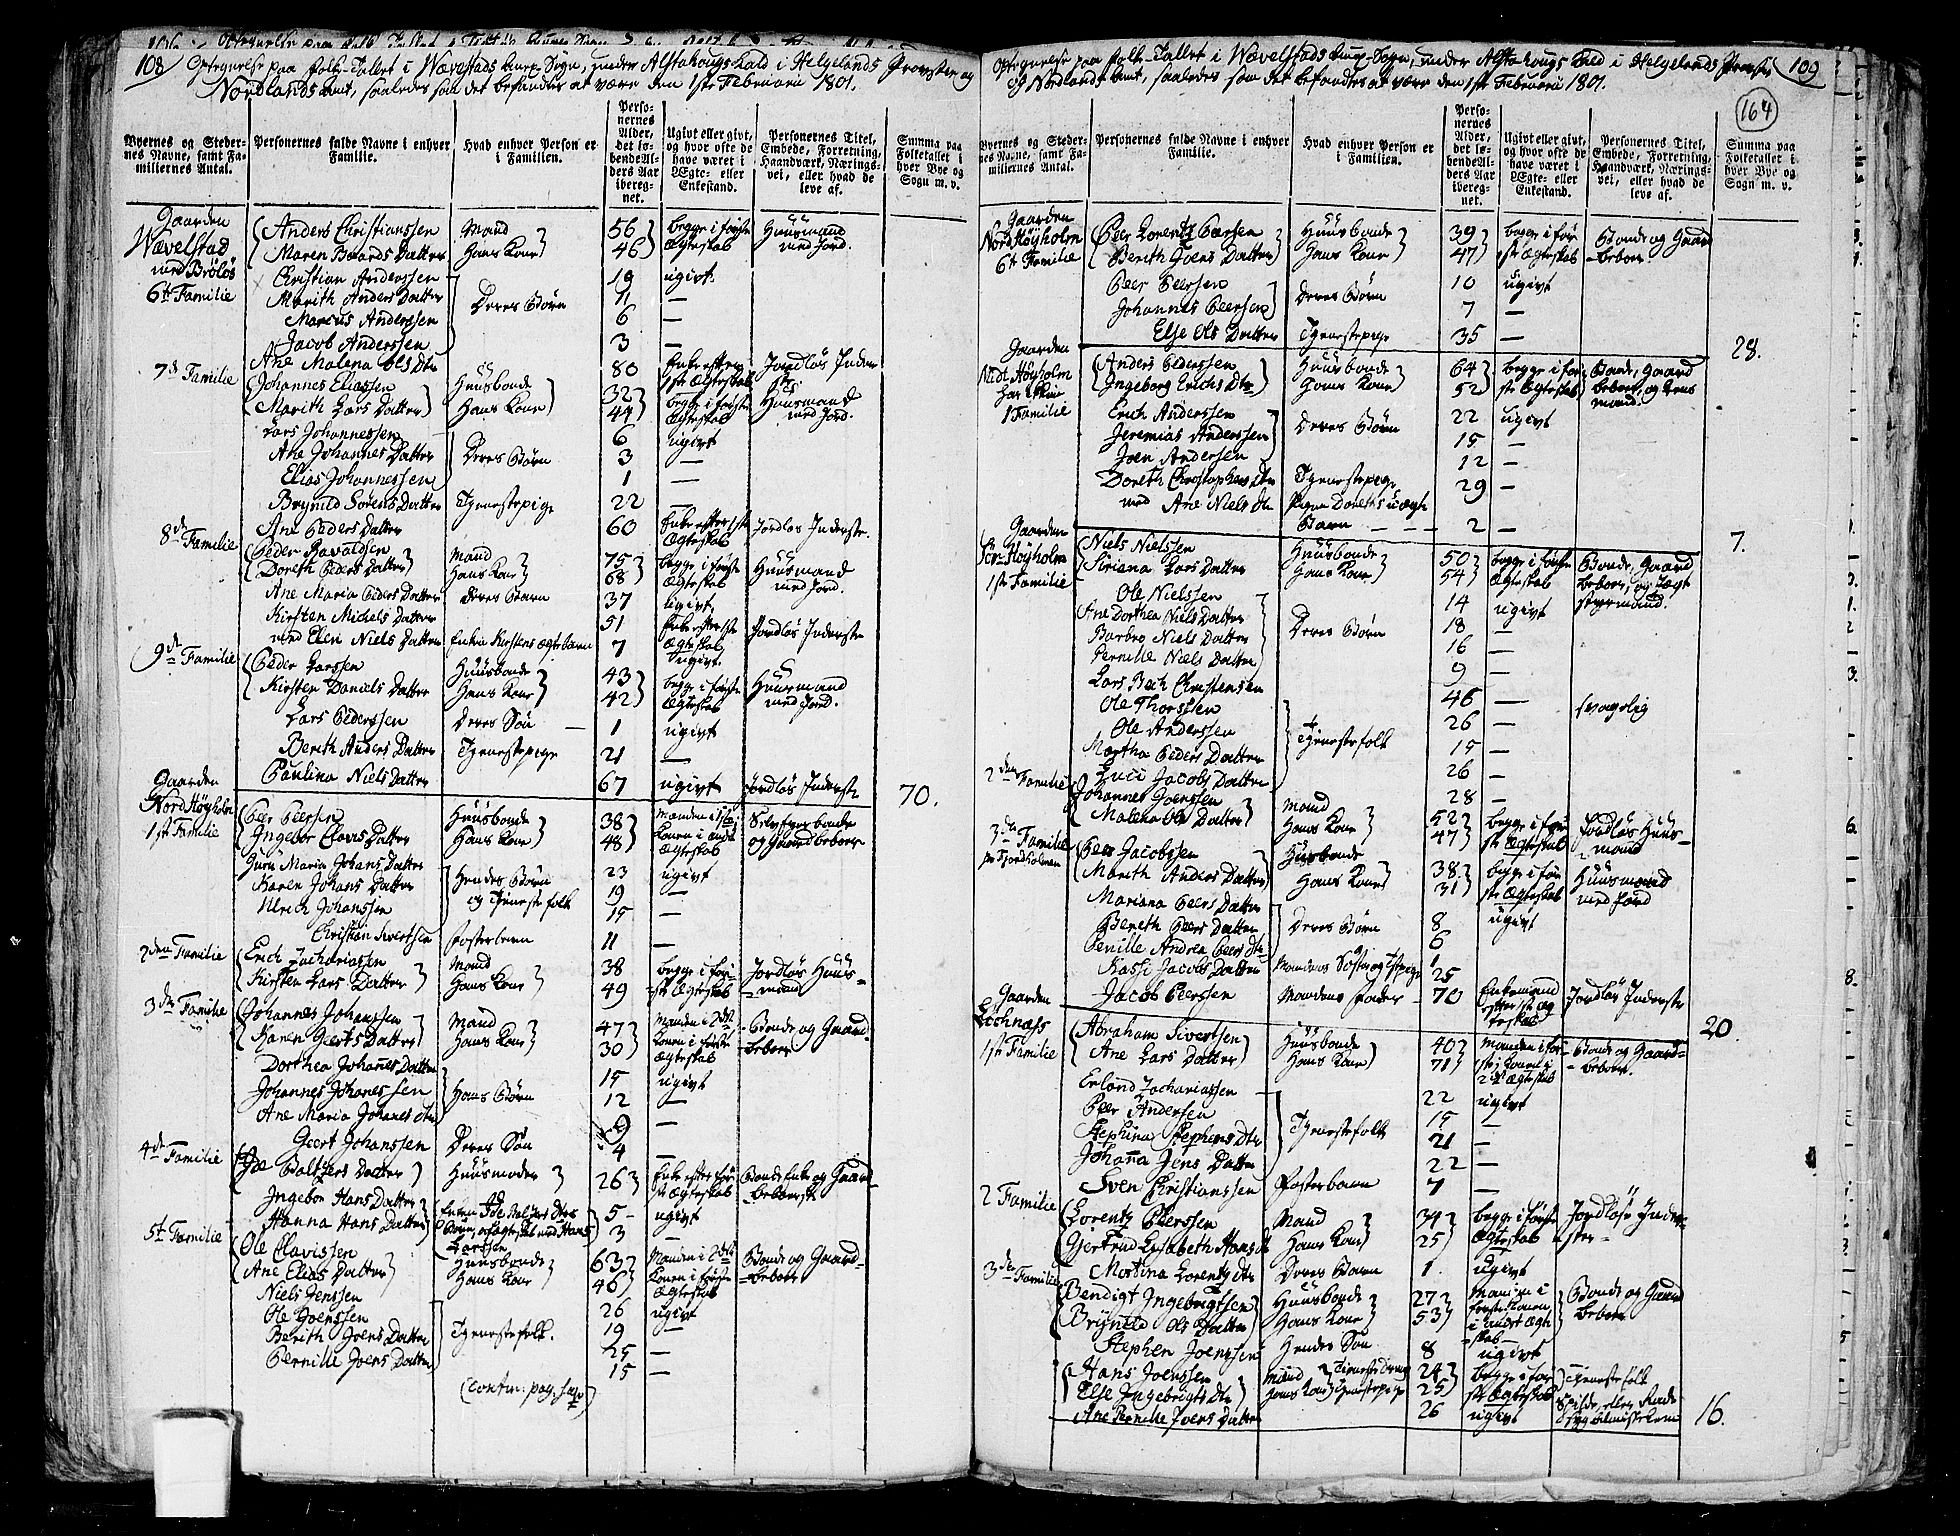 108
Optegnelse paa Folke-Tallet i Wævelstads Anex-Sogn, under Alstahougs Kald i Helgelands Provstie og
Nordlands Amt, saaledes som det befandtes at være den 1ste Februarii 1801.
Byernes og Stedernes Navne, samt Familiernes Antal.
Personernes fulde Navne i enhver Familie.
Hvad enhver Person er i Familien.
Personernes Alder, det løbende Alders Aar iberegnet.
Ugivt eller givt, og hvor ofte de have været i Ægte- eller Enkestand.
Personernes Titel, Embede, Forretning, Haandværk, Næringsvei, eller hvad de leve af.
Summa paa Folketallet i hver Bye og Sogn m. v.
Gaarden Wævelstad med Brøløs
6te Familie
Anders Christianssen Mand 56 begge i første Ægteskab Huusmand med Jord.
Maren Baards Datter Hans Kone 46
Christian Anderssen Deres Børn 19 ugivt
Marith Anders Datter 11 —
Marcus Anderssen 6 —
Jacob Anderssen 3 —
Ane Malena Ols Dtr 80 Enke efter 1ste Ægteskab Jordløs Inderste
7de Familie
Johannes Eliassen Huusbonde 32 begge i første Ægteskab Huusmand med Jord.
Marith Lars Datter Hans Kone 44
Lars Johannessen Deres Børn 6 ugivt
Ane Johannes Datter 3 —
Elias Johannessen 1 —
Brynild Sørens Datter Tjenestepige 22 —
Ane Peders Datter 60 Enke efter 1ste Ægteskab Jordløs Inderste.
8de Familie
Peder Pavaldsen Mand 75 begge i første Ægteskab Huusmand med Jord.
Doreth Peders Datter Hans Kone 68
Ane Maria Peders Datter Deres Barn 37 ugivt
Kirsten Michels Datter 51 Enke efter 1ste Ægteskab Jordløs Inderste
med Elen Niels Datter Enken Kirstens ægte barn 7 Ugivt.
9de Familie
Peder Larssen Huusbonde 43 begge i første Ægteskab Huusmand med Jord.
Kirsten Daniels Datter Hans Kone 42
Lars Pederssen Deres Søn — 1 ugivt
Berith Anders Datter Tjenestepige 21 —
Paulina Niels Datter 67 ugivt Jordløs Inderste 70.
Gaarden Nord Høyholm
1ste Familie
Peer Peersen Huusbonde 38 Manden i 1ste Konen i andet Ægteskab Selvejerbonde og Gaardbeboer
Ingebor Clavis Datter Hans Kone 48
Guru Maria Johans Datter Hendes Børn og Tjenestefolk 23 ugivt
Karen Johans Datter 19 —
Ulrich Johanssen 15 —
Christian Sivertsen Fosterbarn 11 —
2den Familie
Erich Zachariassen Mand 38 begge i første Ægteskab Jordløs Huusmand
Kirsten Lars Datter Hans Kone 49
3die Familie
Johannes Johanssen Mand 47 Manden i 2det Konen i første Ægteskab Bonde og Gaardbeboer
Karen Geerts Datter Hans Kone 30
Dorthea Johanes Datter Hans Børn 15 ugivt
Johannes Johanessen 12 —
Ane Maria Johanes Dtr 9 —
Geert Johanssen Deres Søn 4 —
4de Familie
Ide Baltzers Datter Huusmoder 26 Enke efter første Ægteskab Bonde Enke og Gaardbeboerske
Ingebor Hans Datter Enken Ide Balzers Dtrs Børn af Ægteskab med Hans Larssen 5 ugivt
Hanna Hans Datter 3 —
5te Familie
Ole Clavissen Huusbonde 63 Manden i 2det Konen i første Ægteskab Bonde og Gaardbeboer
Ane Elias Datter Hans Kone 46
Niels Jenssen Tjenestefolk. 26 ugivt
Ole Joenssen 19 —
Berith Joens Datter 25 —
Pernille Joens Datter 15 —
109
164
Optegnelse paa Folke-Tallet i Wævelstads Anex-Sogn, under Alstahougs Kald i Helgelands Provstie
og Nordlands Amt, saaledes som det befandtes at være den 1ste Februarii 1801.
Byernes og Stedernes Navne, samt Familiernes Antal.
Personernes fulde Navne i enhver Familie.
Hvad enhver Person er i Familien.
Personernes Alder, det løbende Alders Aar iberegnet.
Ugivt eller givt, og hvor ofte de have været i Ægte- eller Enkestand.
Personernes Titel, Embede, Forretning, Haandværk, Næringsvei, eller hvad de leve af.
Summa paa Folketallet i hver Bye og Sogn m. v.
Gaarden Nord Høyholm
6te Familie
Peer Lorentz Peersen Huusbonde 39 begge i første Ægteskab Bonde og Gaardbeboer
Berith Joens Datter Hans Kone 47
Peer Peersen Deres Børn 10 ugivt
Johannes Peersen 7 —
Else Ols Datter Tjenestepige 35 — 28.
Gaarden Midt Høyholm har ikkun 1 Familie
Anders Pederssen Huusbonde 64 begge i første Ægteskab Bonde, Gaardbeboer, og Lensmand.
Ingeborg Erichs Dtr Hans Kone 52
Erich Anderssen Deres Børn 22 ugivt
Jeremias Anderssen 15 —
Joen Andersen 12 —
Doreth Christophers Dtr Tjenestepige 29 —
med Ane Niels Dtr Pigen Doreths uægte Barn 2 — 7.
Gaarden Sør Høyholm
1ste Familie
Niels Nielssen Huusbonde 50 begge i første Ægteskab Bonde, Gaardbeboer, og Jægtstyrmand.
Siriana Lars Datter Hans Kone 54
Ole Nielssen Deres Børn 14 ugivt
Ane Dorthea Niels Datter 18 —
Barbro Niels Datter 16 —
Pernille Niels Datter 9 —
Lars Bech Christensen 46 — svagelig
Ole Thorssen Tjenestefolk 26 —
Ole Anderssen 15 —
Martha Peders Datter 26 —
Luci Jacobs Datter 28 —
2den Familie
Johannes Joenssen Mand 52 begge i første Ægteskab Jordløs Huusmand
Malena Ols Datter Hans Kone 47
3die Familie
paa Fjordholmen
Peer Jacobssen Huusbonde 38 begge i første Ægteskab Huusmand med Jord
Marith Anders Datter Hans Kone 31
Mariana Peers Datter Deres Børn 8 ugivt
Bereth Peers Datter 6
Pernille Andrea Peers Dtr 1
Kassi Jacobs Datter Mandens Søster og Tjstpige 25
Jacob Peerssen Mandens Fader 70 Enkemand efter 1ste Ægteskab Jordløs Inderste 20.
Gaarden Lochnæss
1ste Familie
Abraham Sivertsen Huusbonde 40 Manden i første, Konen i 2det Ægteskab Bonde og Gaardbeboer
Ane Lars Datter Hans Kone 71
Erland Zachariassen Tjenestefolk 22 ugivt
Peer Andersen 15 —
Stephina Stephens Dtr 21 —
Johana Jens Datter 22 —
Sven Christianssen Fosterbarn 7 —
2 Familie
Lorentz Peerssen Mand 34 begge i første Ægteskab Jordløse Inderster
Gjertrud Lisabeth Hans Dr Hans Kone 25
Martina Lorentz Dtr Deres Barn 1 ugivt
3die Familie
Bendigt Ingebrigtsen Huusbonde 27 Manden i første Konen i andet Ægteskab Bonde og Gaardbeboer
Brynild Ols Datter Hans Kone 53
Stephen Joenssen Hendes Søn 8 ugivt
Hans Joenssen Mand Tjenestedreng 24 begge i første Ægteskab Tjenestefolk
Else Ingebrigts Dtr Hans Kone Tjenestepige 25
Ane Pernille Joens Datter 26 ugivt 16.